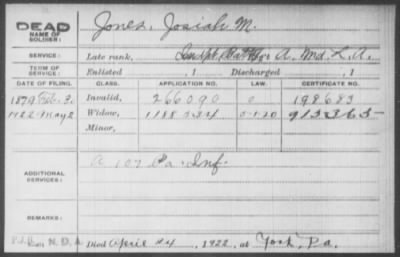 DEAD Jones, Josiah M.
NAME OF SOLDIER:
SERVICE: Late rank, Batt'y A, Md L.A.
TERM OF SERVICE: Enlisted , 1 Discharged , 1
DATE OF FILING. CLASS. APPLICATION NO. LAW. CERTIFICATE NO.
1879 Feb. Invalid, 266090 198683
1922 May 2 Widow, 1188534 5-1-20 913363
Minor,
ADDITIONAL SERVICES: A 107 Pa. Inf.
REMARKS:
N.D.A Died April 24, 1922, at York, Pa.